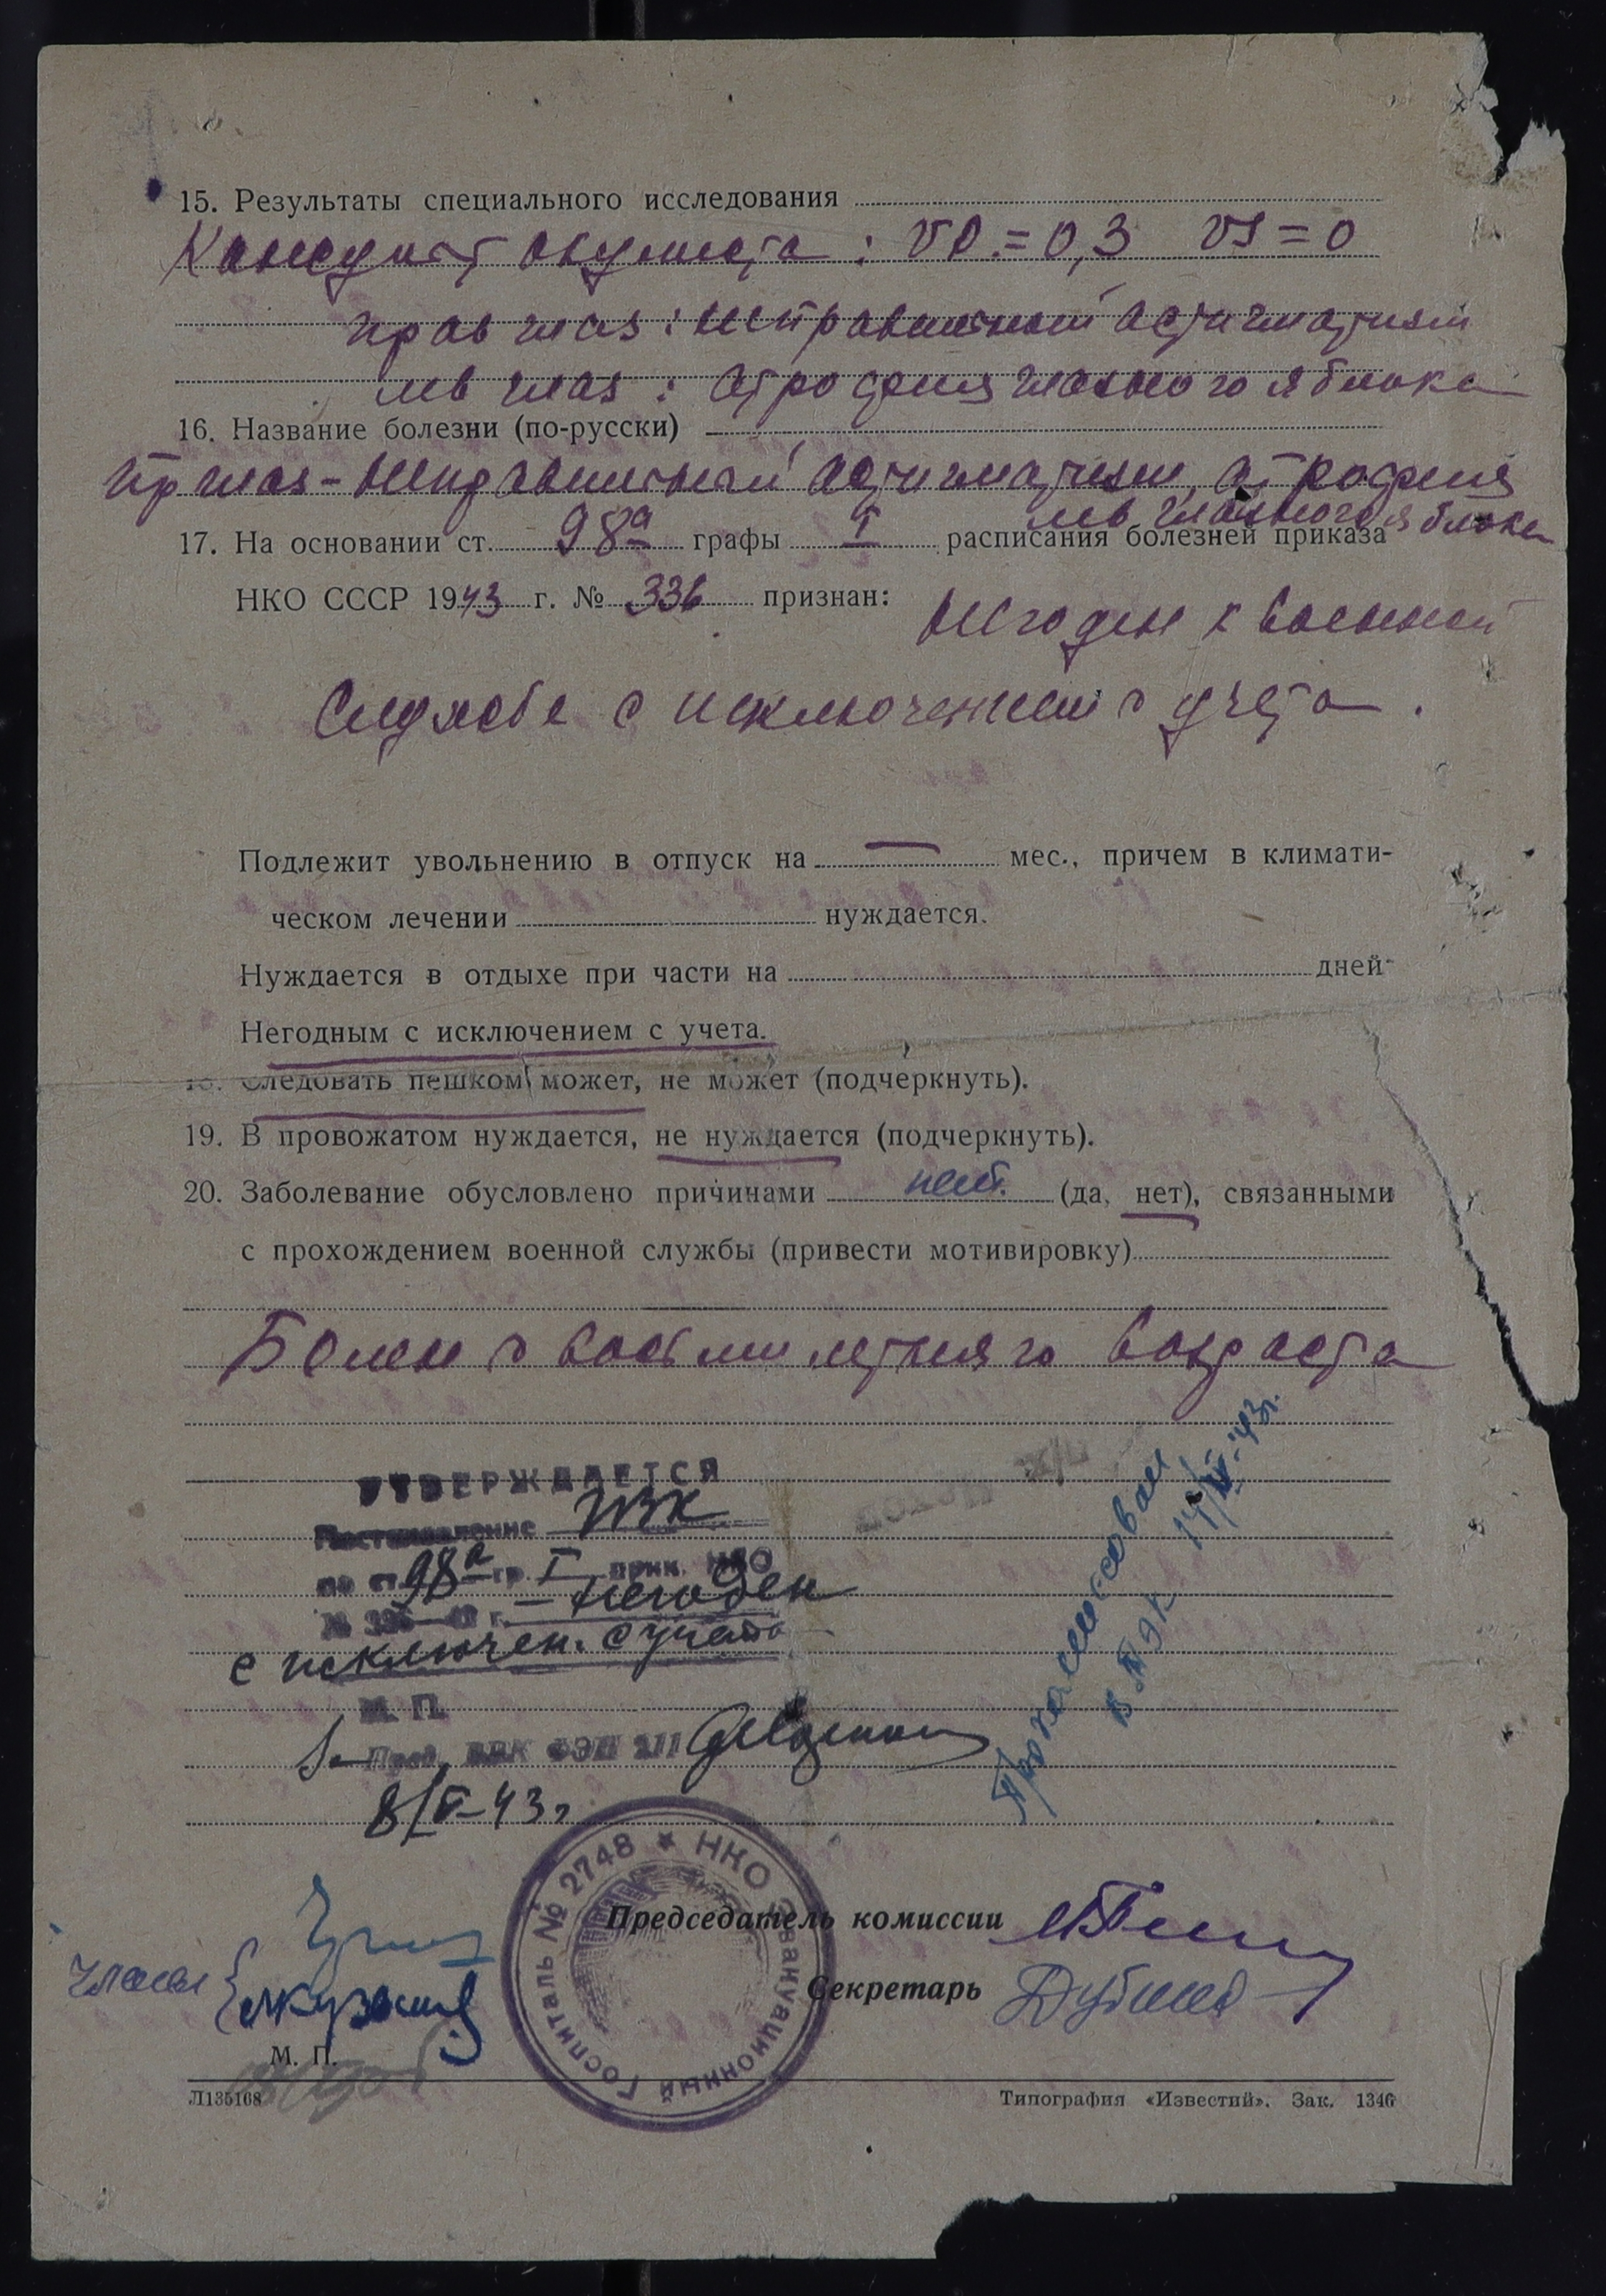 15. Результаты специального исследования
Консульт окулиста: VD.=0,3 VS=0
прав глаз: неправильный астигматизм
лев глаз: атрофия глазного яблока
16. Название болезни (по-русски)
пр глаз - неправильный астигматизм, атрофия
лев глазного яблока
17. На основании ст. 98а графы I расписания болезней приказа
НКО СССР 1943 г. № 336 признан: Негоден к военной
службе с исключением с учета.
Подлежит увольнению в отпуск на — мес., причем в климати-
ческом лечении нуждается.
Нуждается в отдыхе при части на дней
Негодным с исключением с учета.
18. Следовать пешком может, не может (подчеркнуть).
19. В провожатом нуждается, не нуждается (подчеркнуть).
20. Заболевание обусловлено причинами нет. (да, нет), связанными
с прохождением военной службы (привести мотивировку)
Болен с восьми летняго возраста
УТВЕРЖДАЕТСЯ
Постановление
по ст. 98а гр. I прик. НКО
№ 336 г. - негоден
с исключен. с учета
М. П.
Пред. ВВК ФЭП
8/V-43г
43г.
НКО Эвакуационный Госпиталь № 2748
Председатель комиссии
Секретарь
Члены
М. П.
Л135168
Типография «Известий». Зак. 1346